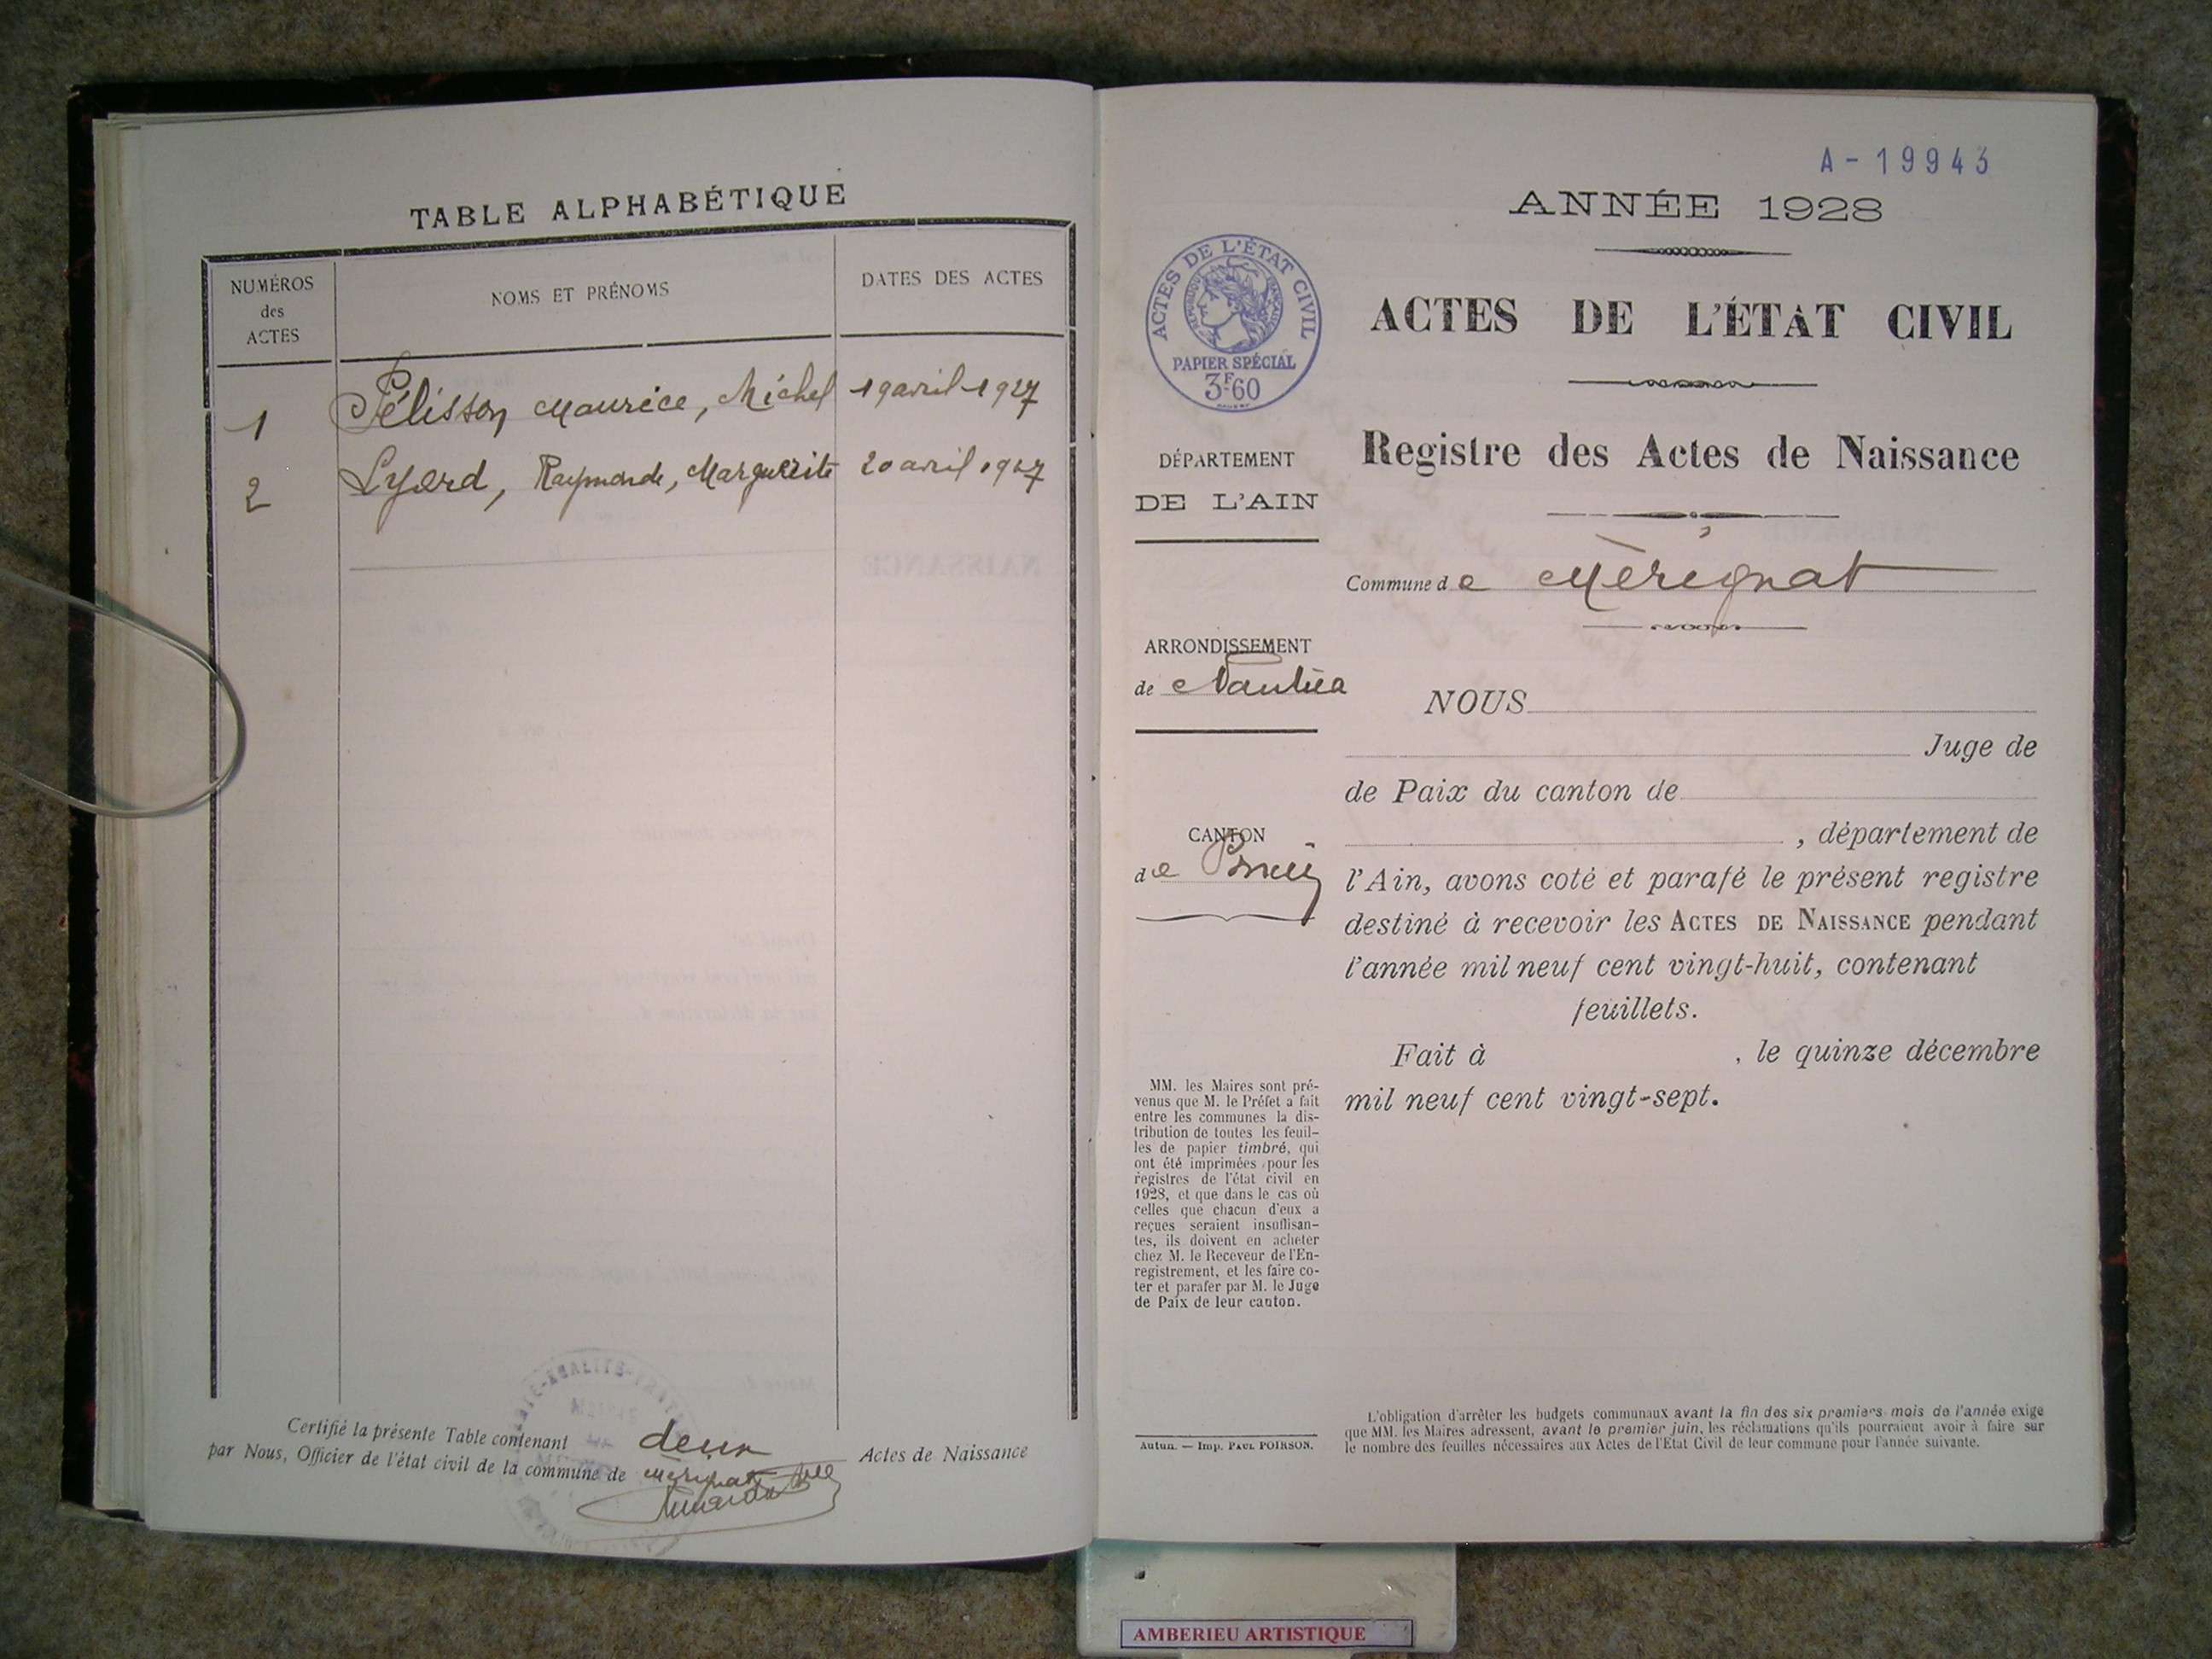 TABLE ALPHABÉTIQUE
NUMÉROS
des
ACTES
NOMS ET PRÉNOMS
DATES DES ACTES
1 Pélisson Maurice, Michel 19 avril 1927
2 Lyard, Raymonde, Marguerite 20 avril 1927
Certifié la présente Table contenant deux Actes de Naissance
par Nous, Officier de l'état civil de la commune de Mérignat
A-19943
ANNÉE 1928
ACTES DE L'ÉTAT CIVIL
RÉPUBLIQUE FRANÇAISE
PAPIER SPÉCIAL
3F60
ACTES DE L'ÉTAT CIVIL
Registre des Actes de Naissance
DÉPARTEMENT
DE L'AIN
Commune de Mérignat
ARRONDISSEMENT
de Nantua
CANTON
de Poncin
NOUS
Juge de
de Paix du canton de
, département de
l'Ain, avons coté et parafé le présent registre
destiné à recevoir les ACTES DE NAISSANCE pendant
l'année mil neuf cent vingt-huit, contenant
feuillets.
Fait à , le quinze décembre
mil neuf cent vingt-sept.
MM. les Maires sont pré-
venus que M. le Préfet a fait
entre les communes la dis-
tribution de toutes les feuil-
les de papier timbré, qui
ont été imprimées pour les
registres de l'état civil en
1928, et que dans le cas où
celles que chacun d'eux a
reçues seraient insuffisan-
tes, ils doivent en acheter
chez M. le Receveur de l'En-
registrement, et les faire co-
ter et parafer par M. le Juge
de Paix de leur canton.
Autun. — Imp. PAUL POIRSON.
L'obligation d'arrêter les budgets communaux avant la fin des six premiers mois de l'année exige
que MM. les Maires adressent, avant le premier juin, les réclamations qu'ils pourraient avoir à faire sur
le nombre des feuilles nécessaires aux Actes de l'État Civil de leur commune pour l'année suivante.
AMBERIEU ARTISTIQUE